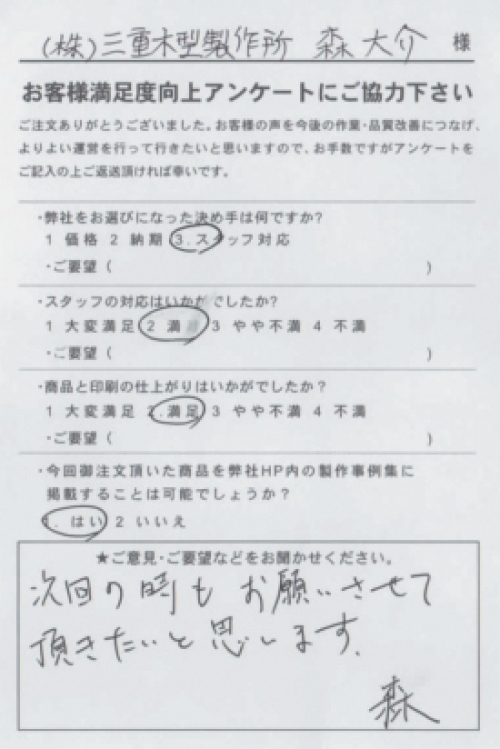 (株)三重木型製作所 森 大介 様
お客様満足度向上アンケートにご協力下さい
ご注文ありがとうございました。お客様の声を今後の作業・品質改善につなげ、
よりよい運営を行って行きたいと思いますので、お手数ですがアンケートを
ご記入の上ご返送頂ければ幸いです。
・弊社をお選びになった決め手は何ですか?
1 価格 2 納期 3.スタッフ対応
・ご要望 ( )
・スタッフの対応はいかがでしたか?
1 大変満足 2 満 3 やや不満 4 不満
・ご要望 ( )
・商品と印刷の仕上がりはいかがでしたか?
1 大変満足 2.満足 3 やや不満 4 不満
・ご要望 ( )
・今回御注文頂いた商品を弊社HP内の製作事例集に
掲載することは可能でしょうか?
1. はい 2 いいえ
★ご意見・ご要望などをお聞かせください。
次回の時もお願いさせて
頂きたいと思います.
森